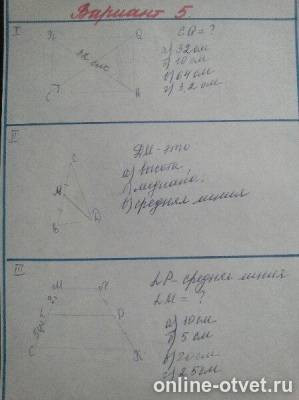 Вариант 5.
I
Q
32 см
C
CQ = ?
а) 32 см
б) 10 см
в) 64 см
г) 3,2 см
II
ДМ - это
а) высота
б) медиана
в) средняя линия
C
М
В
D
III
LP - средняя линия
LM = ?
а) 10 см
б) 5 см
в) 20 см
г) 25 см
М
C
К
online-otvet.ru